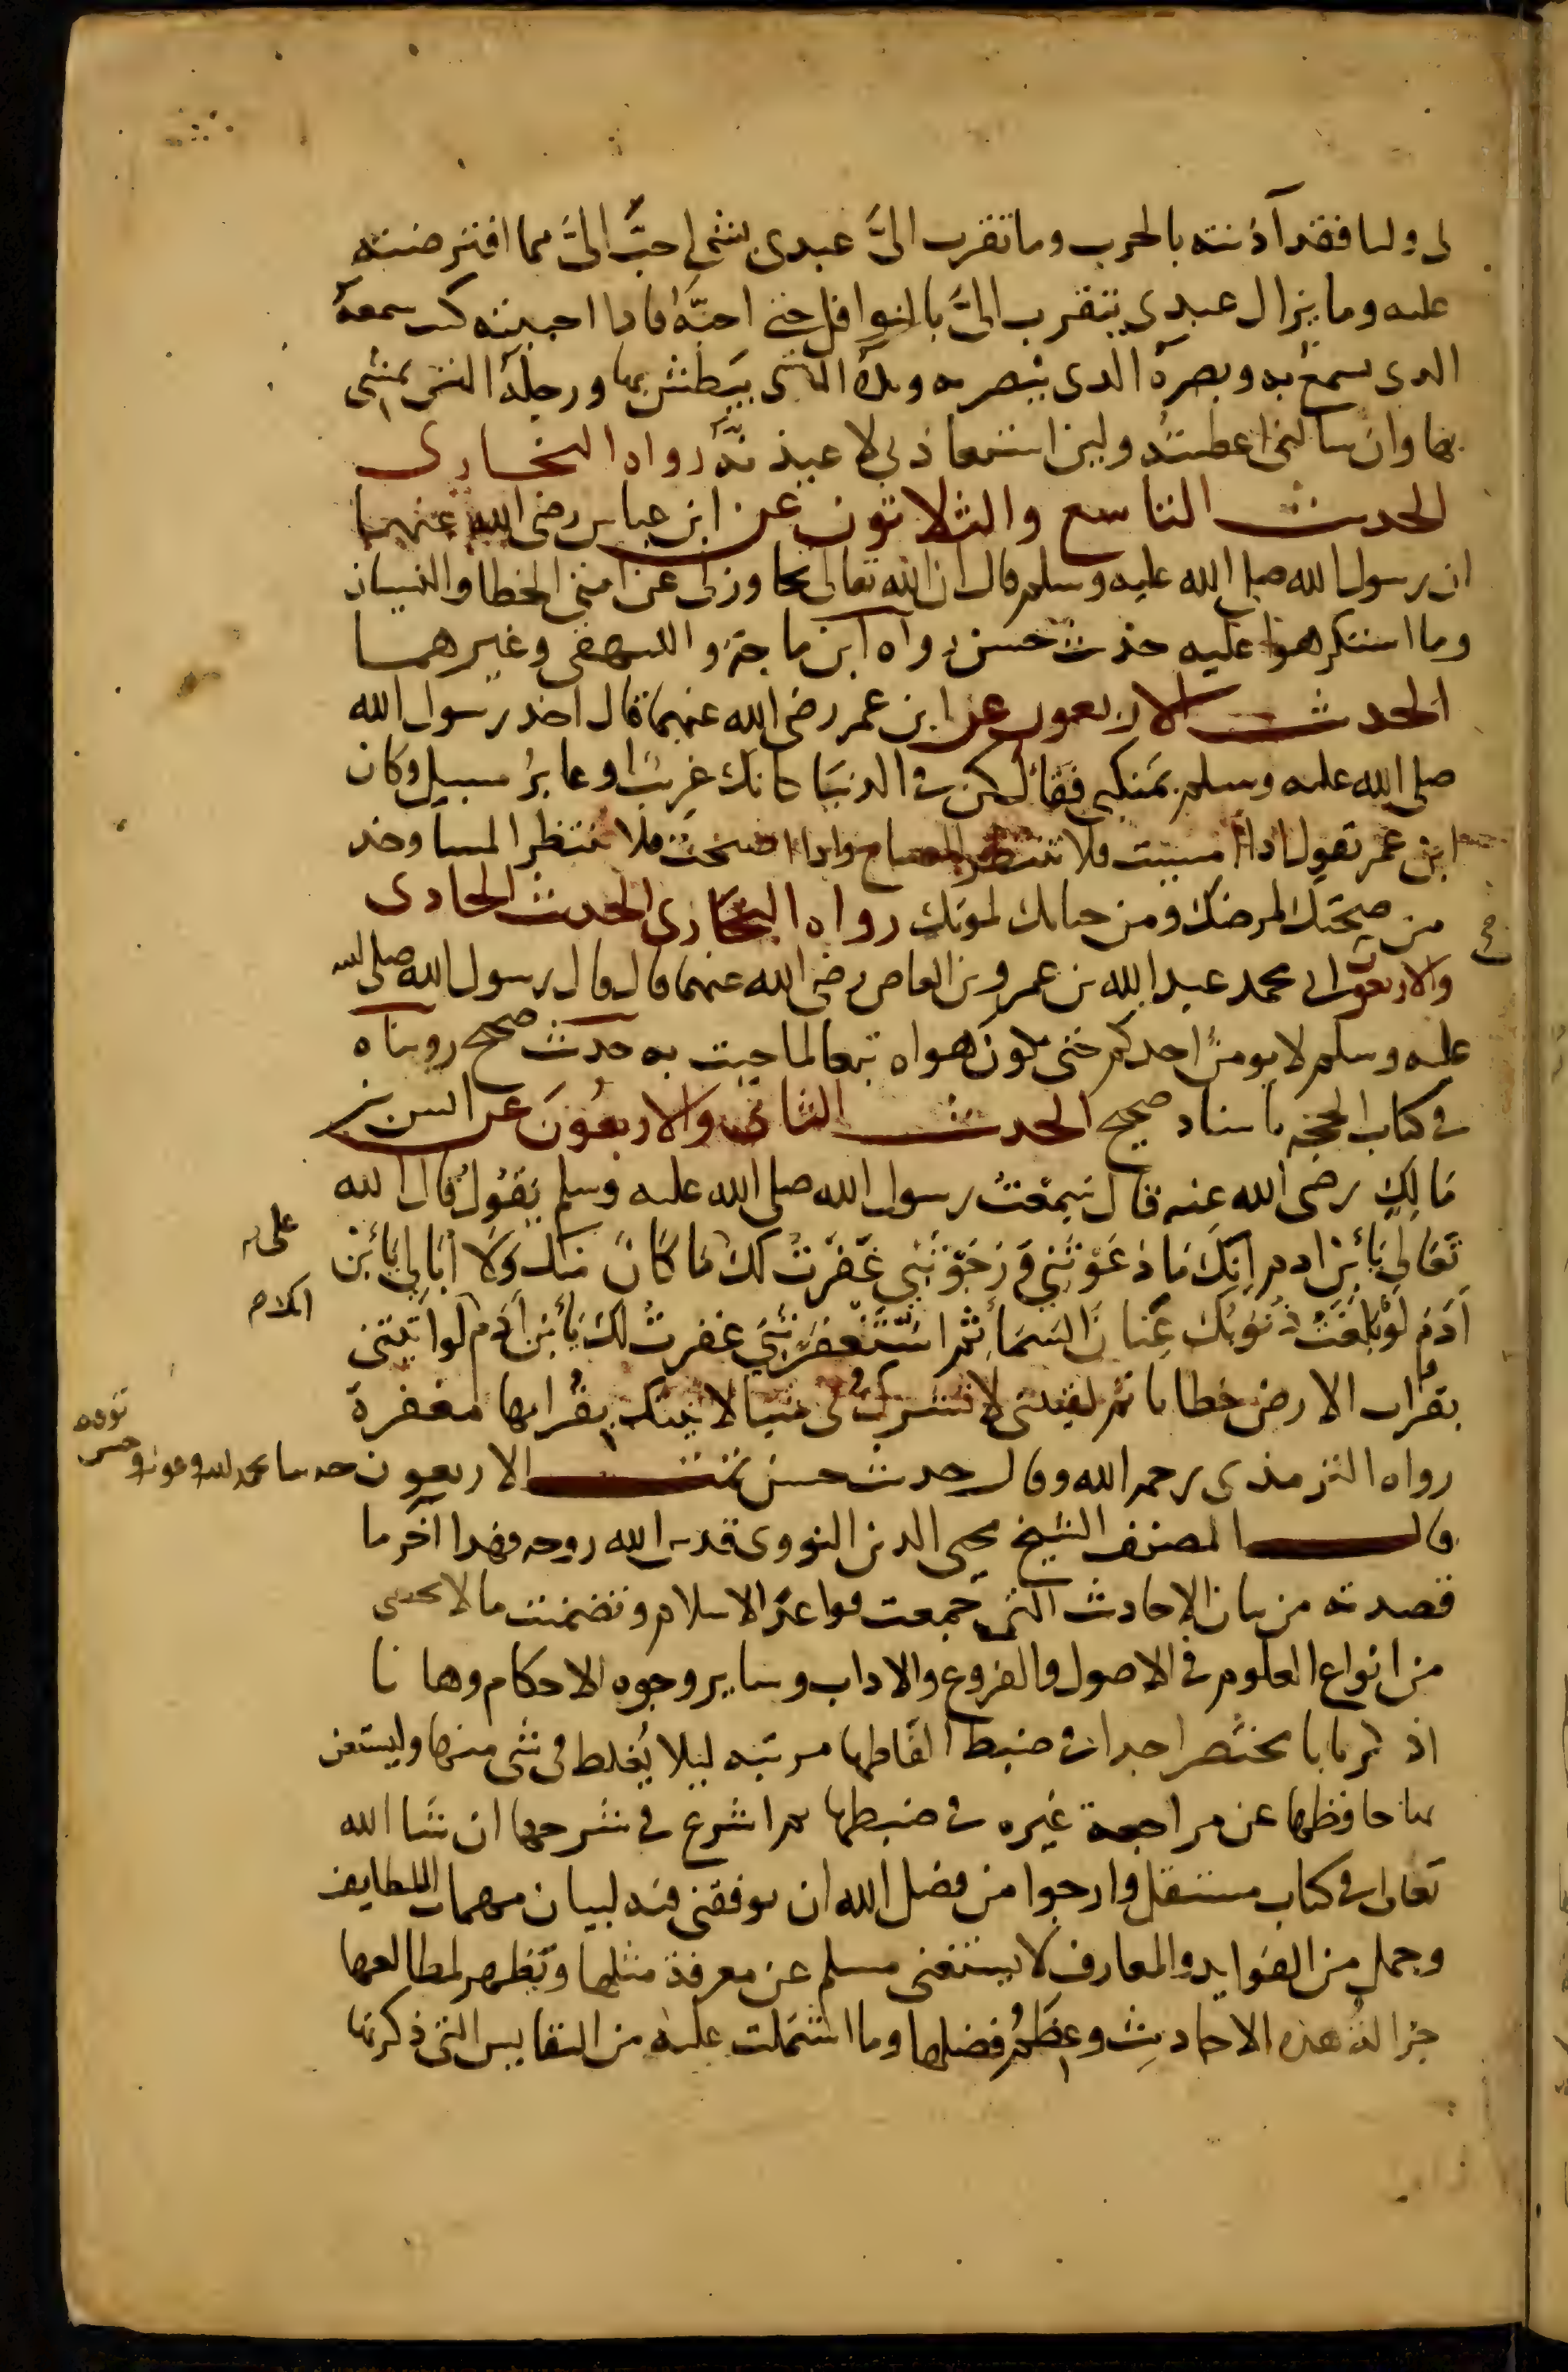 لى وليا فقد آذنته بالحرب وما تقرب الىَّ عبدى بشى احبَّ الىَّ مما افترضته
عليه وما يزال عبدى يتقرب الىَّ بالنوافل حتى احبَّه فاذا احببته كنت سمعه
الدى يسمع به وبصره الدى يبصر به ويده التى يبطش بها ورجله التى يمشى
بها وان سالنى اعطيته ولين استعاذ بى لاعيذنه رواه البخارى
الحديث التاسع والثلاثون عن ابن عباس رضى الله عنهما
ان رسول الله صلى الله عليه وسلم قال ان الله تعالى تجاوز لى عن امتى الخطا والنسيان
وما استكرهوا عليه حديث حسن رواه ابن ماجة والبيهقى وغيرهما
الحديث الاربعون عن ابن عمر رضى الله عنهما قال اخد رسول الله
صلى الله عليه وسلم بمنكبى فقال كن فى الدنيا كانك غريب او عابر سبيل وكان
ابن عمر يقول ادا امسيت فلا تنتظر الصباح وادا اصبحت فلا تنتظر المسا وخد
من صحتك لمرضك ومن حياتك لموتك رواه البخارى الحديث الحادى
والاربعون عن ابى محمد عبد الله بن عمرو بن العاص رضى الله عنهما قال قال رسول الله صلى الله
عليه وسلم لا يومن احدكم حتى يكون هواه تبعا لما جيت به حديث صحيح رويناه
فى كتاب الحجه باسناد صحيح الحديث الثانى والاربعون عن انس بن
مالك رضى الله عنه قال سمعت رسول الله صلى الله عليه وسلم يقول قال الله
تعالى يا بن ادم انك ما دعوتنى ورجوتنى غفرت لك ما كان منك ولا ابالى يا بن
آدم لو بلغت ذنوبك عنان السما ثم استغفرتنى غفرت لك يا بن آدم لو اتيتنى
بقراب الارض خطايا ثم لقيتنى لا تشرك بى شيا لاتيتك بقرابها مغفرة
رواه الترمذى رحمه الله وقال حديث حسن تمت الاربعون حديثا بحمد الله وعونه وحسن
توفيقه
قال المصنف الشيخ محيى الدين النووى قدس الله روحه فهدا آخر ما
قصدته من بيان الاحاديث التى جمعت قواعد الاسلام وتضمنت ما لا يحصى
من انواع العلوم فى الاصول والفروع والاداب وساير وجوه الاحكام وها نا
اذكر بابا مختصرا جدا فى ضبط الفاظها مرتبه ليلا يُغلط فى شى منها وليستغن
بها حافظها عن مراجعة غيره فى ضبطها ثم اشرع فى شرحها ان شا الله
تعالى فى كتاب مستقل وارجوا من فضل الله ان يوفقنى فيه لبيان مهمات اللطايف
وجمل من الفوايد والمعارف لا يستغنى مسلم عن معرفة مثلها وتظهر لمطالعها
جزالة هذه الاحاديث وعظم فضلها وما اشتملت عليه من النفايس التى ذكرتها